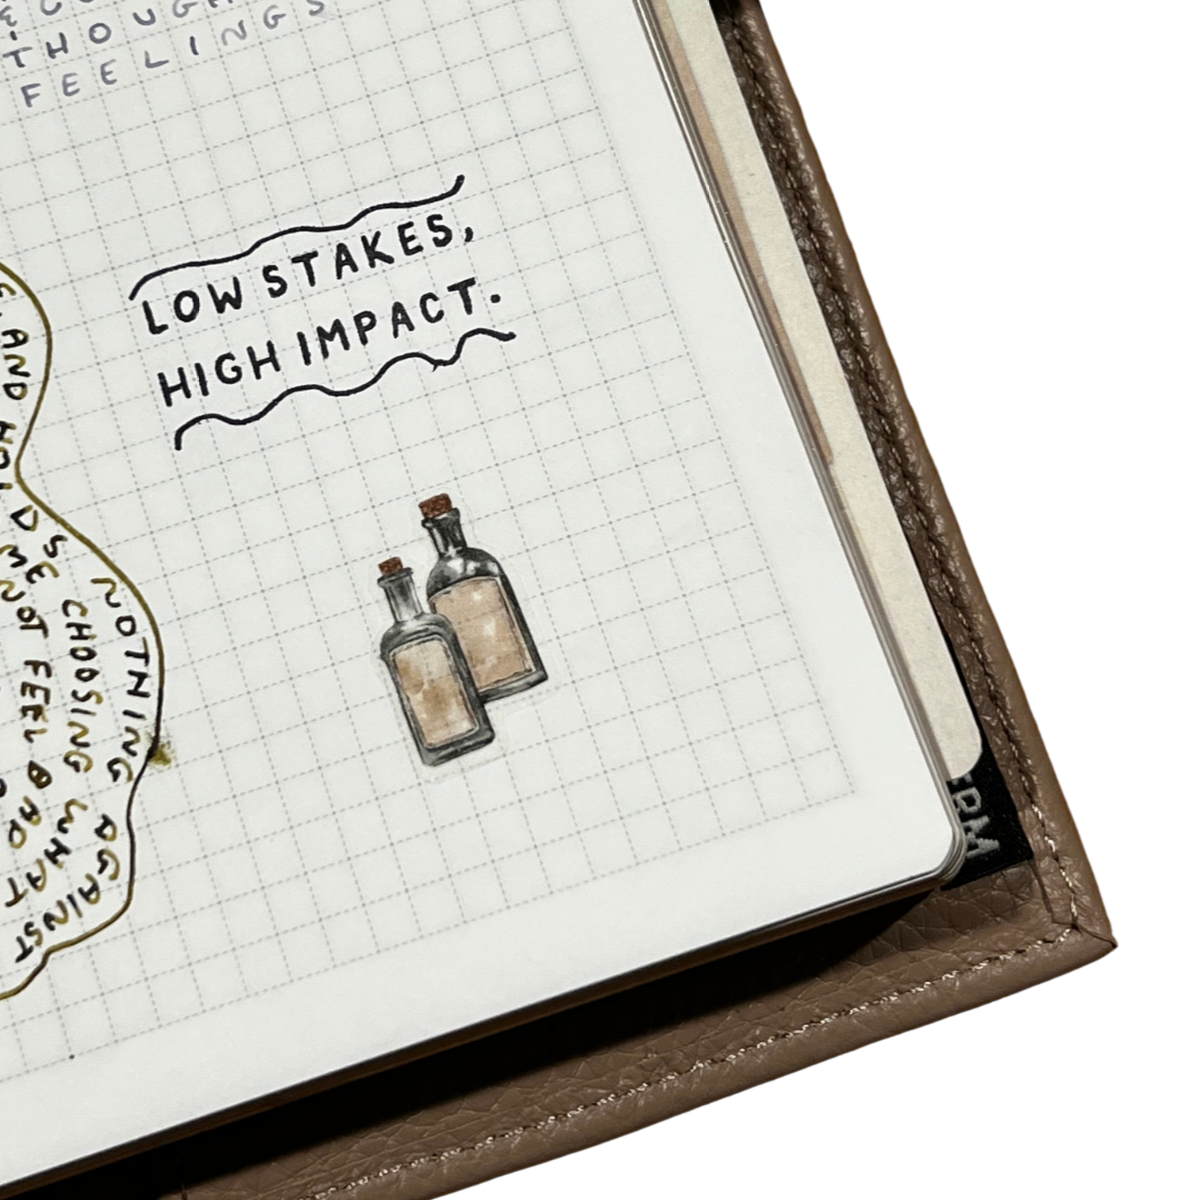 THOUGH
FEELINGS
LOW STAKES,
HIGH IMPACT.
AND HOLD
SE NOT FEEL BAD
CHOOSING WHAT
NOTHING AGAINST
ERM